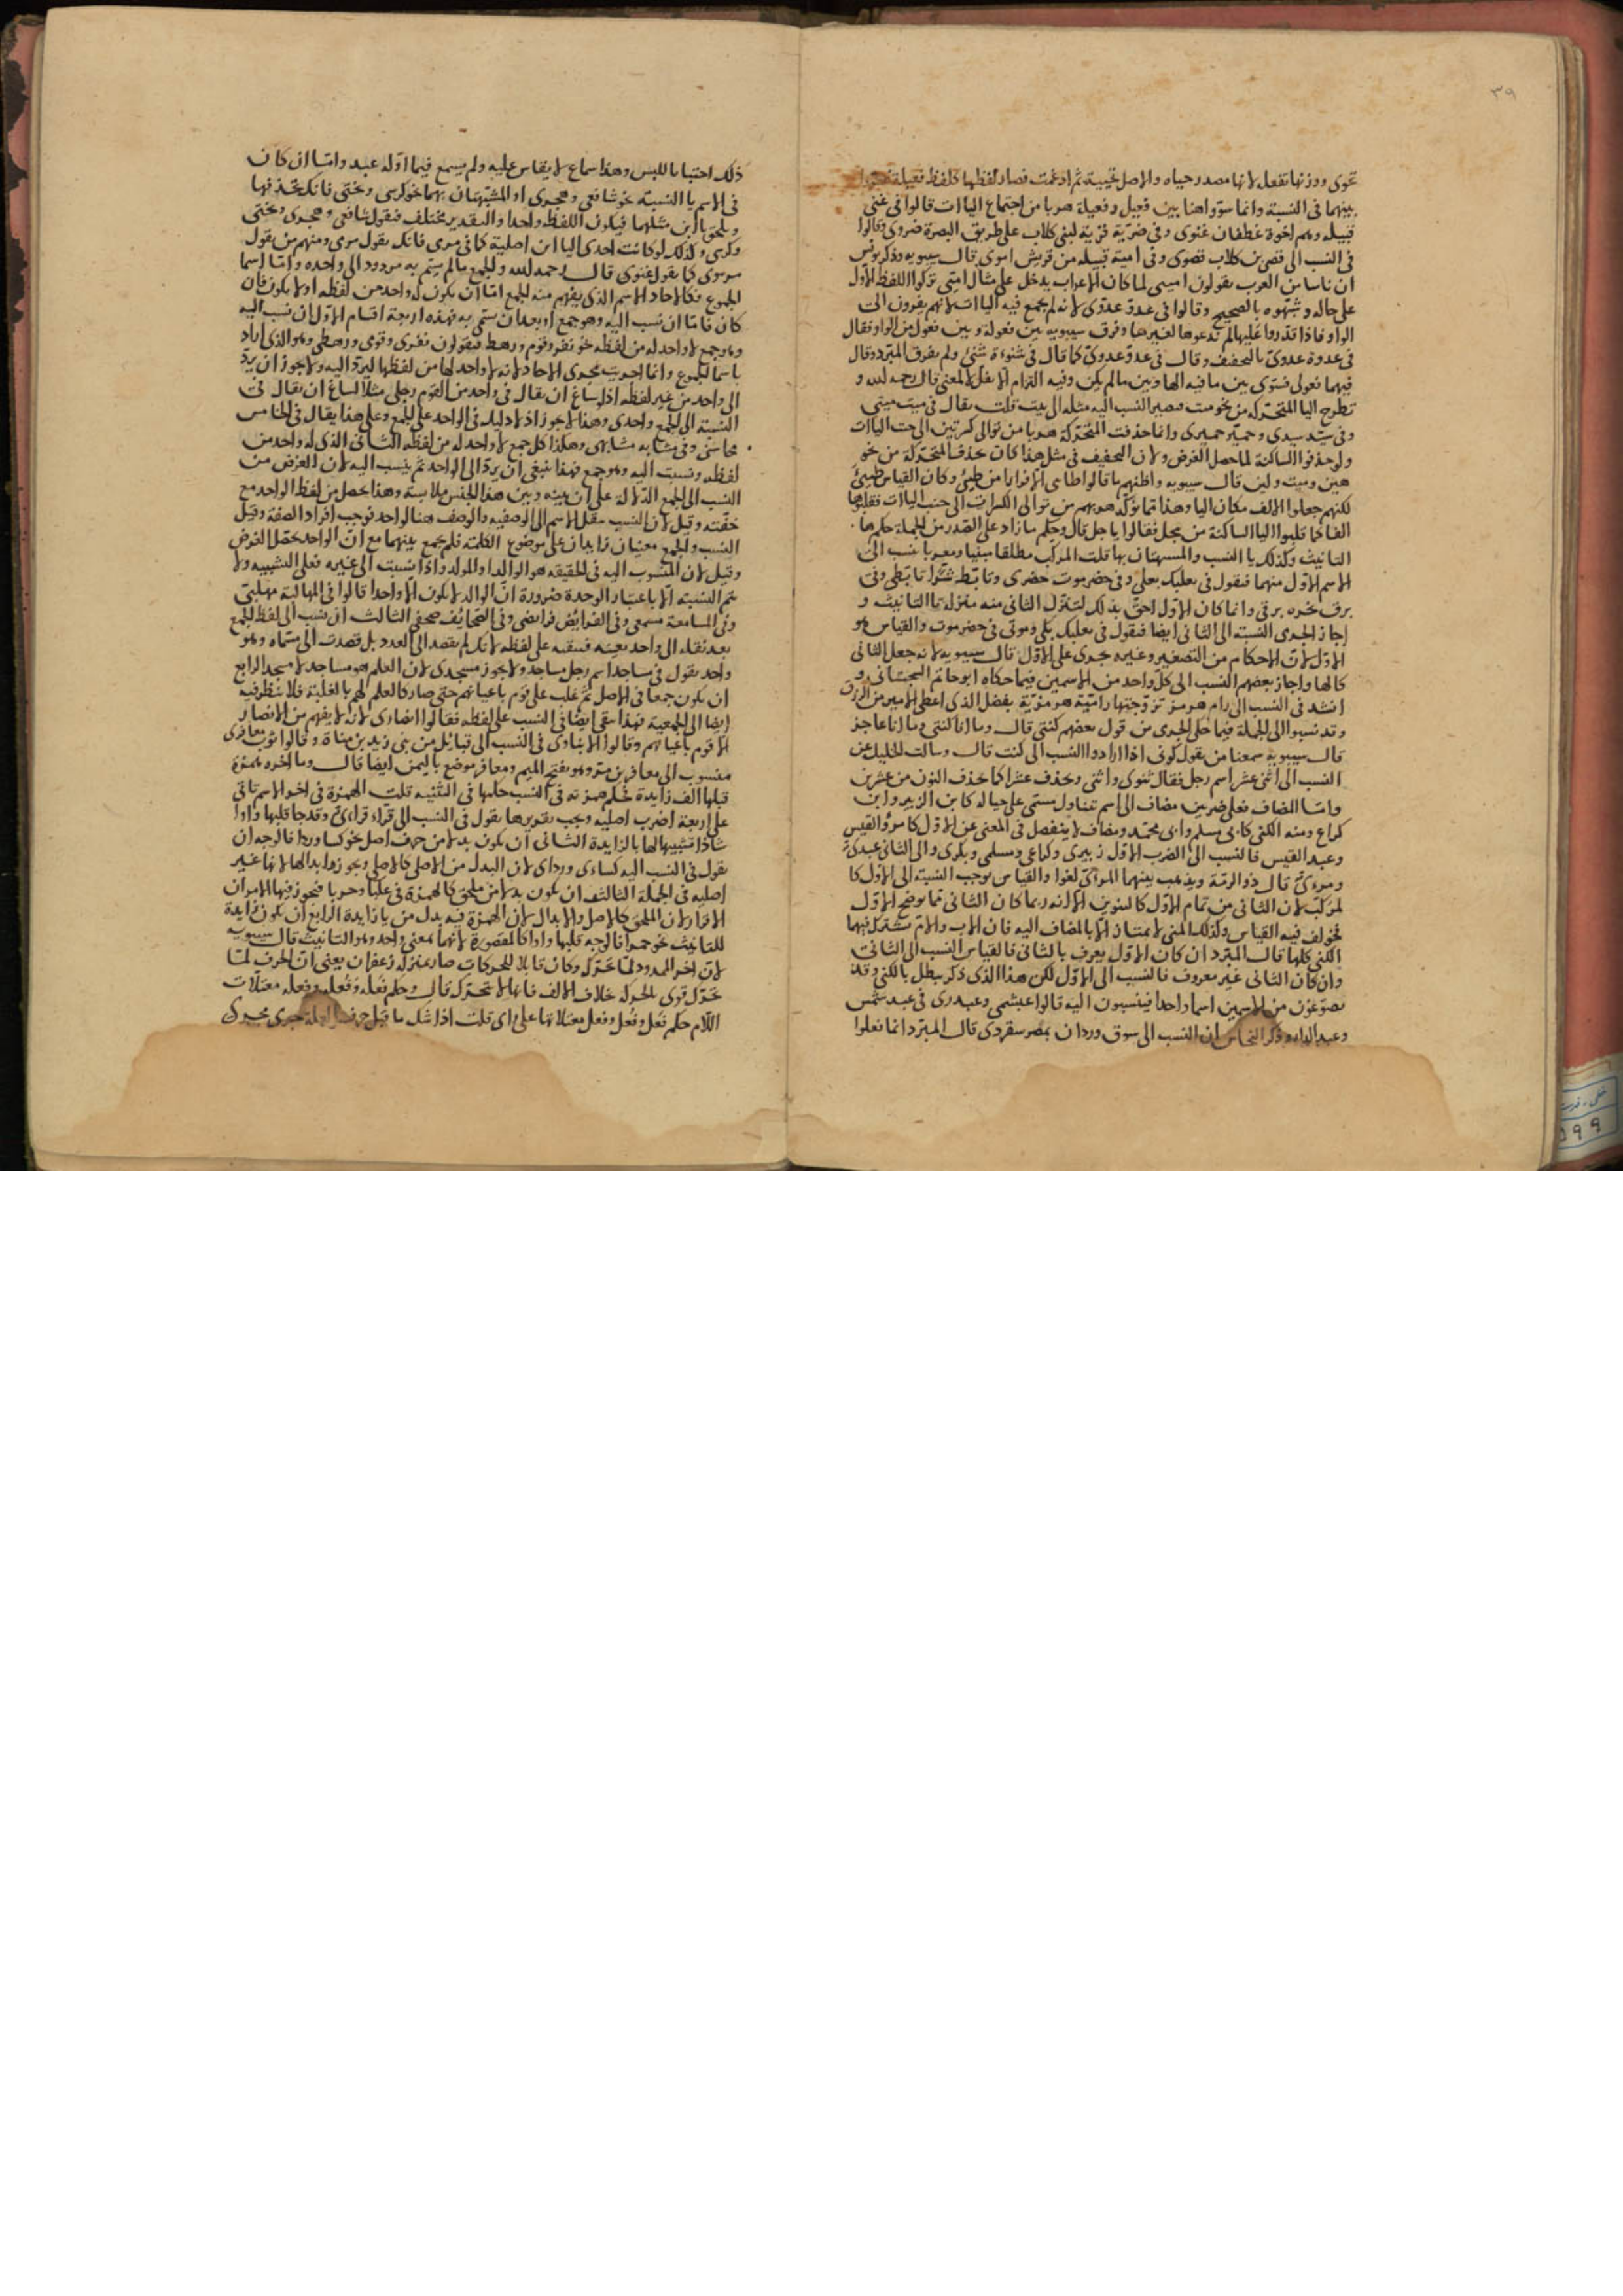 ٣٩
تحوى ووزنها تفعل لانها مصدر حياه والاصل تحيية ثم ادغمت فصار لفظها كلفظ فعيلة
بينهما فى النسبة وانما سووا هنا بين فعيل وفعيلة هربا من اجتماع الياات قالوا فى غنى
قبيله وهم اخوة غطفان غنوى وفى ضرية قرية لبنى كلاب على طريق البصرة ضروى وقالوا
فى النسب الى قصى بن كلاب قصوى وفى امية قبيله من قريش اموى قال سيبويه وذكر يونس
ان ناسا من العرب يقولون اميى لما كان الاعراب يدخل على مثال امتى تركوا اللفظ الاول
على حاله وشبهوه بالصحيح وقالوا فى عدو عدوى لانه لم يجمع فيه الياات لانهم يفرون الى
الواو فاذا قدروا عليها لم تدعوها لغيرها وفرق سيبويه بين فعولة وبين فعول من الواو فقال
فى عدوة عدوى بالتخفيف وقال فى عدو عدوى كما قال فى شنوءة شنئى ولم يفرق المبرد وقال
فيهما فعولى فسوى بين ما فيه الها وبين ما لم يكن وفيه التزام الا نقل لا لمعنى قال رحمه لله و
تطرح اليا المتحركة من نحو ميت فيصير النسب اليه مثله الى بيت قلت يقال فى ميت ميتى
وفى سيد سيدى وحمير حميرى وانما حذفت المتحركة هربا من توالى كسرتين الى جنب الياات
ولو حذفوا الساكنة لما حصل الغرض ولان التخفيف فى مثل هذا كان بحذف المتحركة من نحو
هين وميت ولين قال سيبويه واظنهم ما قالوا طاى الا فرارا من طيئى وكان القياس طيئى
لكنهم جعلوا الالف مكان اليا وهذا مما يؤكد هربهم من توالى الكسرات الى جنب الياات فقلبوها
الفا كما قلبوا اليا الساكنة من ييجل فقالوا ياجل قال وحكم ما زاد على الصدر من الجملة حكم ها
التانيث وكذلك يا النسب والمشبهتان بها قلت المركب مطلقا مبنيا ومعربا ينسب الى
الاسم الاول منهما فيقول فى بعلبك بعلى وفى حضرموت حضرى وتابط شرا تابطى وفى
برق نحره برقى وانما كان الاول احق بذلك لتنزل الثانى منه منزلة تا التانيث و
اجاز الجرمى النسبة الى الثانى ايضا فيقول فى بعلبك بكى وموتى فى حضرموت والقياس هو
الاول لان الاحكام من التصغير وغيره جرى على الاول قال سيبويه لانه جعل الثانى
كالها واجاز بعضهم النسب الى كل واحد من الاسمين فيما حكاه ابو حاتم السجستانى و
انشد فى النسب الى رام هرمز تزوجتها رامية هرمزية بفضل الذى اعطى الامير من الرزق
وقد نسبوا الى الجملة فيما حكى الجرمى من قول بعضهم كنتى قال وما انا كنتى وما انا عاجز
قال سيبويه سمعنا من يقول كونى اذا ارادوا النسب الى كنت قال وسالت الخليل عن
النسب الى اثنى عشر اسم رجل فقال ثنوى واثنى وحذف عشر كما حذف النون من عشرين
واما المضاف فعلى ضربين مضاف الى اسم يتناول مسمى على حياله كابن الزبير وابن
كراع ومنه الكنى كابى مسلم وابى محمد ومضاف لا ينفصل فى المعنى عن الاول كامرؤ القيس
وعبد القيس فالنسب الى الضرب الاول زبيرى وكراعى ومسلمى وبكرى والى الثانى عبدى
ومرءى قال ذو الرمة ويذهب بينهما المرأى لغوا والقياس يوجب النسبة الى الاول كا
لمركب لان الثانى من تمام الاول كالتنوين الا انه ربما كان الثانى مما يوضح الاول
خولف فيه القياس وكذلك الكنى لا تمتاز الا بالمضاف اليه فان الاب والام تشترك فيهما
الكنى كلها قال المبرد ان كان الاول يعرف بالثانى فالقياس النسب الى الثانى
وان كان الثانى غير معروف فالنسب الى الاول لكن هذا الذى ذكر يبطل بالكنى وقد
يصوغون من الاسمين اسما واحدا فينسبون اليه قالوا عبشمى وعبدرى فى عبد شمس
وعبد الدار وذكر النحاس ان النسب الى سوق وردان بمصر سقردى قال المبرد انما فعلوا
ذلك اجتنابا للبس وهذا سماع لا يقاس عليه ولم يسمع فيما اوله عبد واما ان كان
فى الاسم يا النسبة نحو شافعى وهجرى او المشبهتان بهما نحو كرسى وبختى فانك تحذفها
ويلحق باين مثلهما فيكون اللفظ واحدا والتقدير مختلف فيقول شافعى وهجرى وبختى
وكرسى وكذلك لو كانت احدى اليا ان اصلية كما فى مرمى فانك يقول مرمى ومنهم من يقول
مرموى كما يقول غنوى قال رحمه لله والجمع ما لم يسم به مردود الى واحده واما اسما
الجموع فكالاحاد الاسم الذى يفهم منه الجمع اما ان يكون له واحد من لفظه اولا يكون فان
كان فاما ان نسب اليه وهو جمع او بعد ان سمى به فهذه اربعة اقسام الاول ان نسب اليه
وهو جمع لا واحد له من لفظه نحو نفر وقوم ورهط فيقولون نفرى وقومى ورهطى وهو الذى اراد
باسما الجموع وانما اجريت مجرى الاحاد لانه لا واحد لها من لفظها ليرد اليه ولا يجوز ان يرد
الى واحد من غير لفظه اذ لو ساغ ان يقال فى واحد من القوم رجلى مثلا لساغ ان يقال فى
النسبة الى الجمع واحدى وهذا لا يجوز اذ لا دليل فى الواحد على الجمع وعلى هذا يقال فى المحاسن
محاسنى وفى مشابه مشابهى وهكذا كل جمع لا واحد له من لفظه الثانى الذى له واحد من
لفظه ونسبت اليه وهو جمع فهذا ينبغى ان يرد الى الواحد ثم ينسب اليه لان الغرض من
النسب الى الجمع الدلالة على ان بينه وبين هذا الجنس ملابسة وهذا يحصل من لفظ الواحد مع
خفته وقيل لان النسب ينقل الاسم الى الوصفيه والوصف هنا لواحد فوجب افراد الصفة وقيل
النسب والجمع معنيان زايدان على موضوع الكلمة فلم يجمع بينهما مع ان الواحد يحصل الغرض
وقيل لان المنسوب اليه فى الحقيقه هو الوالد او المولد واذا نسبت الى غيره فعلى التشبيه ولا
يتم النسبة الا باعتبار الوحدة ضرورة ان الوالد لا يكون الا واحدا قالوا فى المهالبة مهلبى
وفى المسامعة مسمعى وفى الفرائض فرايضى وفى الصحايف صحفى الثالث ان نسب الى لفظ الجمع
بعد نقله الى واحد بعينه فتبقيه على لفظه لانك لم تقصد الى العدد بل قصدت الى مسماه وهو
واحد يقول فى مساجد اسم رجل مساجدى ولا يجوز مسجدى لان العلم هو مساجد لا مسجد الرابع
ان يكون جمعا فى الاصل ثم غلب على قوم باعيانهم حتى صار كالعلم لهم بالغلبة فلا ينظر فيه
ايضا الى الجمعية فهذا يبقى ايضا فى النسب على لفظه فقالوا انصارى لانه لا يفهم من الانصار
الا قوم باعيانهم وقالوا الابناوى فى النسب الى قبائل من بنى زيد بن مناة وقالوا ثوب معافرى
منسوب الى معافر بن مر وهو بفتح الميم ومعافر موضع باليمن ايضا قال وما اخره همزة
قبلها الف زايدة حكم همزته فى النسب حكمها فى التثنيه قلت الهمزة فى اخر الاسم تاتى
على اربعة اضرب اصليه ويجب تقريرها يقول فى النسب الى قراء قراءى وقد جا قلبها واوا
شاذا تشبيها لها بالزايدة الثانى ان يكون بدلا من حرف اصل نحو كسا وردا فالوجه ان
يقول فى النسب اليه كساءى ورداى لان البدل من الاصلى كالاصلى ويجوز ابدالها لانها غير
اصليه فى الجملة الثالث ان يكون بدلا من ملحق كالهمزة فى علبا وحربا فيجوز فيها الامران
الاقرار لان الملحق كالاصل والابدال لان الهمزة فيه بدل من يا زايدة الرابع ان يكون زايدة
للتانيث نحو حمرا فالوجه قلبها واوا كالمقصورة لانهما بمعنى واحد وهو التانيث قال سيبويه
لان اخر الممدود لما تحرك وكان قابلا للحركات صار بمنزلة زعفران يعنى ان الحرف لما
تحرك قوى بالحركة خلاف الالف فانها لا تتحرك قال وحكم فعله وفعله وفعله معتلات
اللام حكم فعل وفعل وفعل معتلاتها على راى قلت اذا سكن ما قبل حرف العلة جرى مجرى